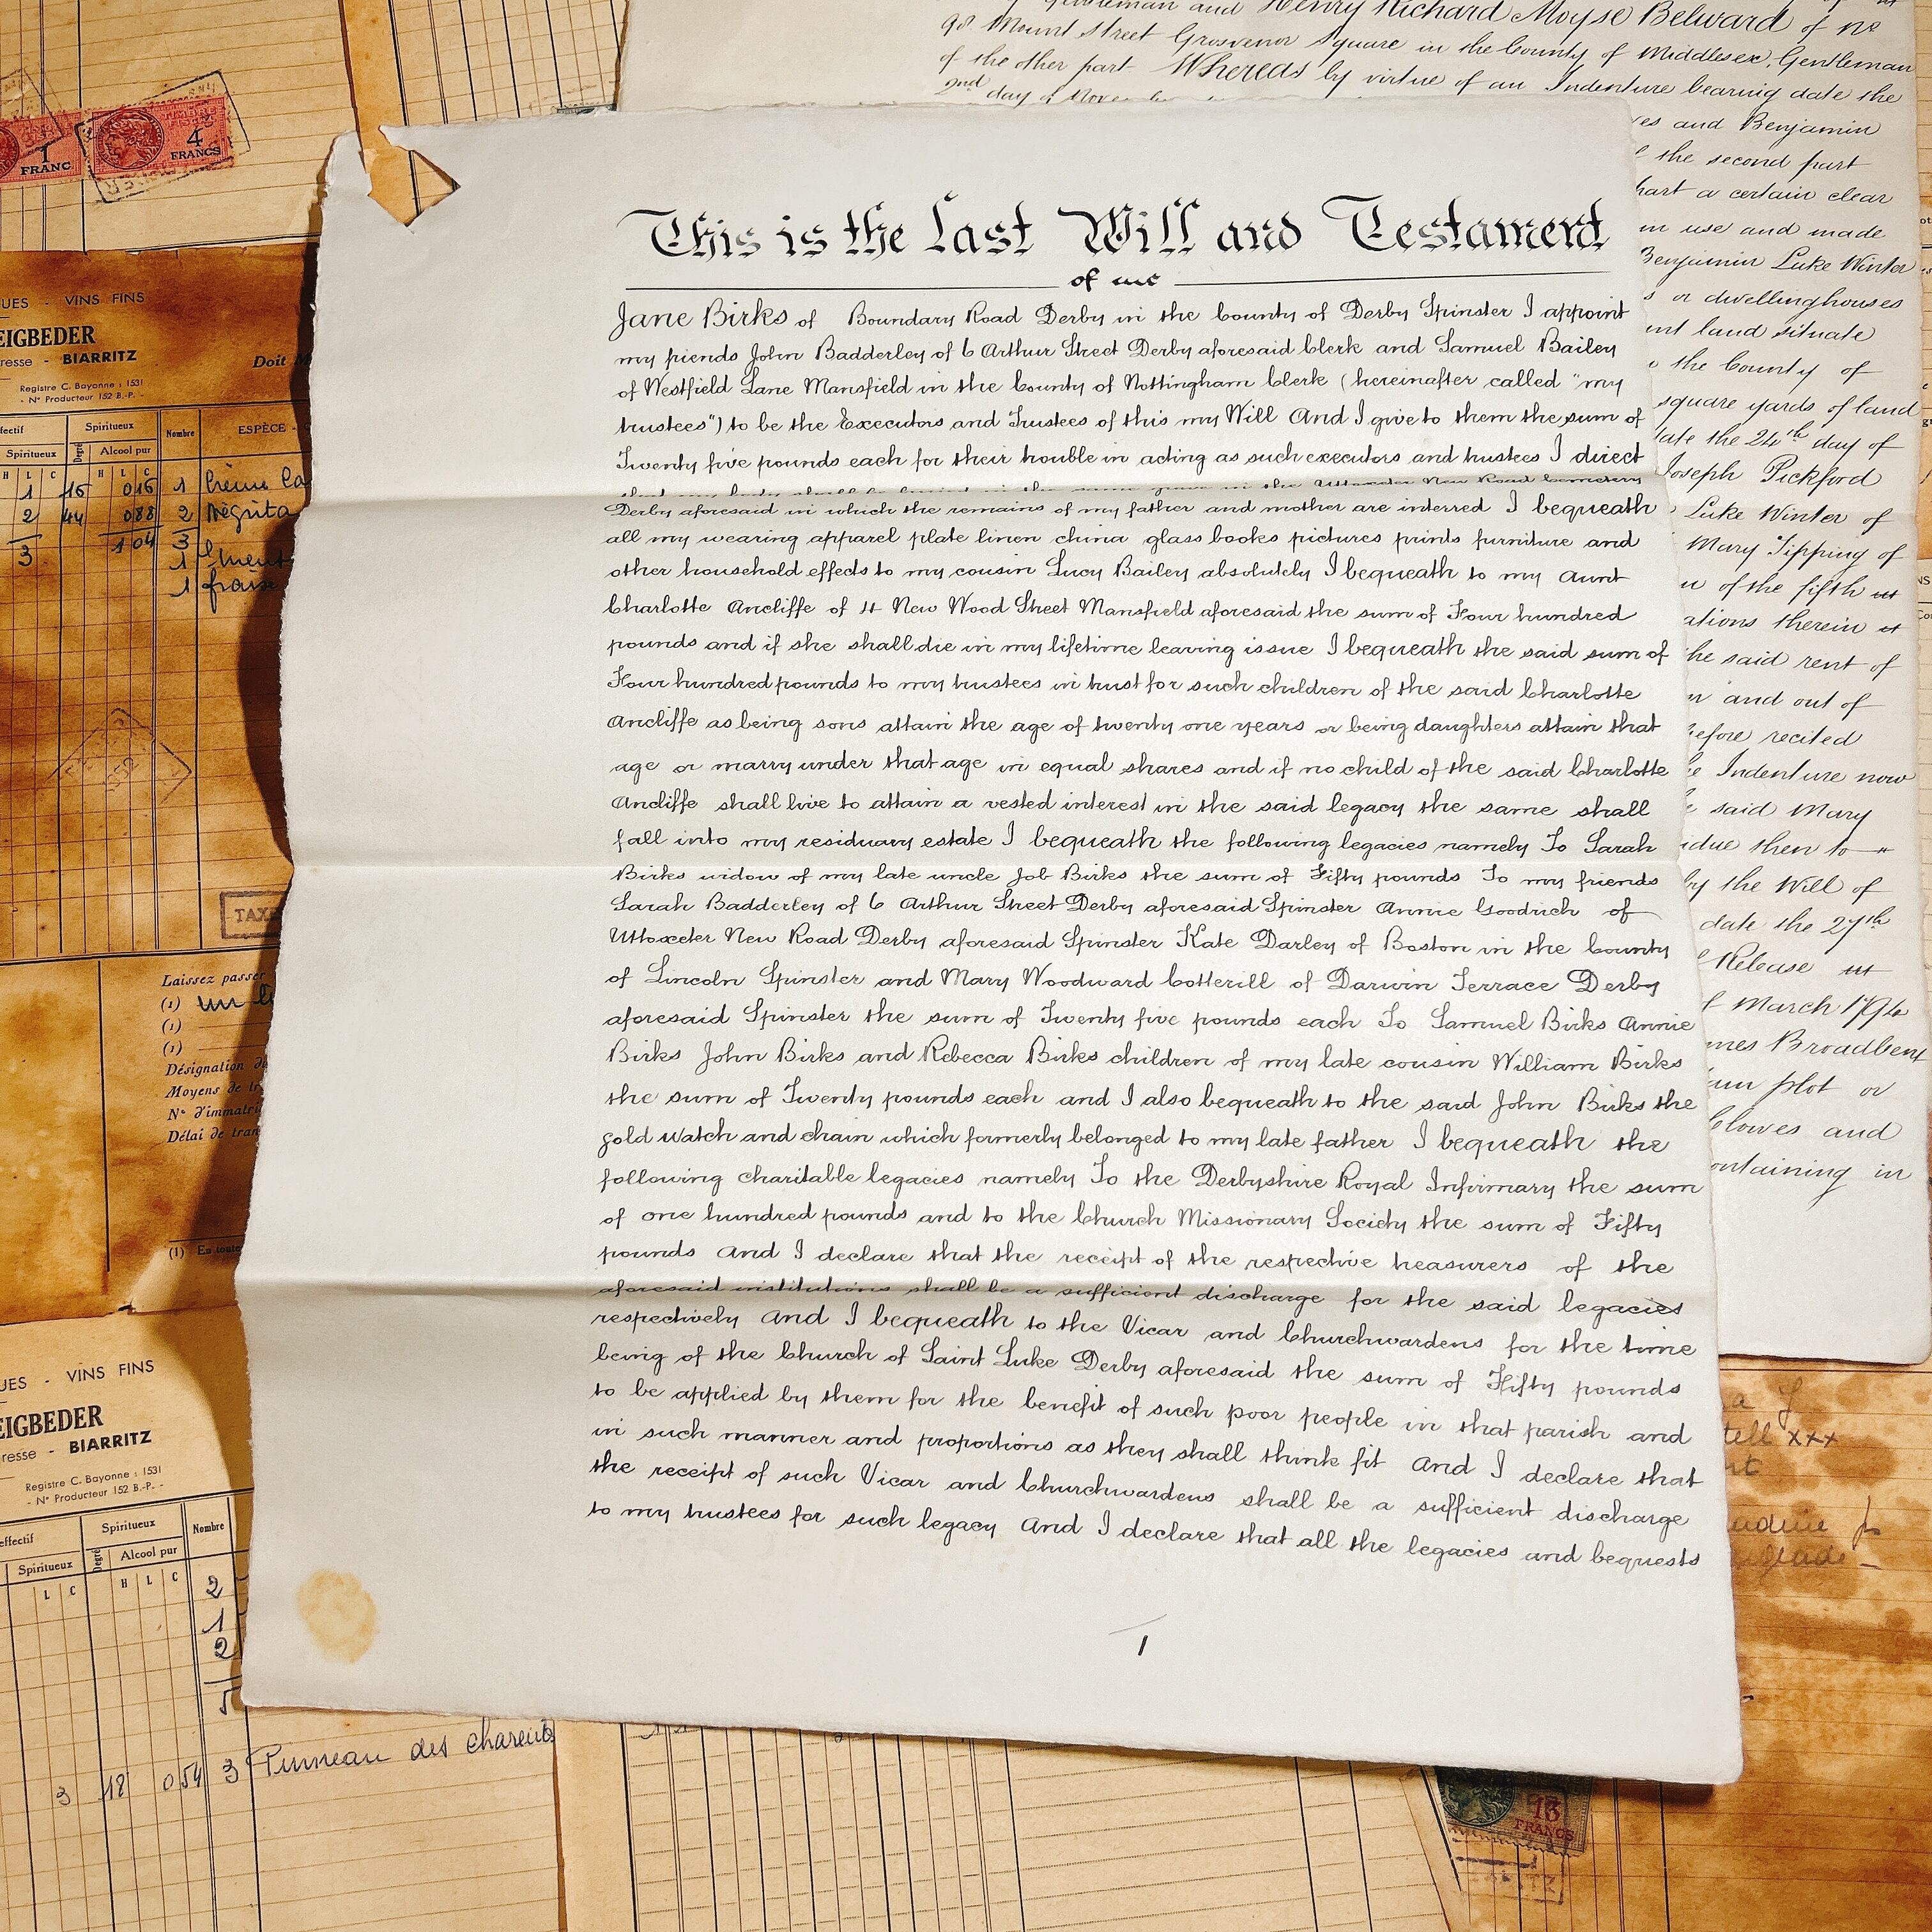 gentleman and Henry Richard Moyse Belward of No
98 Mount Street Grosvenor Square in the County of Middlesex Gentleman
of the other part Whereas by virtue of an Indenture bearing date the
2nd day of
and Benjamin
the second part
a certain clear
in use and made
Benjamin Luke Winter
s or dwellinghouses
land situate
the County of
square yards of land
the 24th day of
Joseph Pickford
Luke Winter of
Mary Tipping of
of the fifth
therein
the said rent of
and out of
before recited
Indenture now
said Mary
then to
by the Will of
date the 27th
Release
March
Broadbent
plot or
Clowes and
containing in
1 FRANC
4 FRANCS
This is the last Will and Testament
of me
Jane Birks of Boundary Road Derby in the County of Derby Spinster I appoint
my friends John Badderley of 6 Arthur Street Derby aforesaid Clerk and Samuel Bailey
of Westfield Lane Mansfield in the County of Nottingham Clerk (hereinafter called "my
trustees") to be the Executors and Trustees of this my Will And I give to them the sum of
Twenty five pounds each for their trouble in acting as such executors and trustees I direct
that my body shall be buried in the same grave in the Uttoxeter New Road Cemetery
Derby aforesaid in which the remains of my father and mother are interred I bequeath
all my wearing apparel plate linen china glass books pictures prints furniture and
other household effects to my cousin Lucy Bailey absolutely I bequeath to my Aunt
Charlotte Ancliffe of 4 New Wood Street Mansfield aforesaid the sum of Four hundred
pounds and if she shall die in my lifetime leaving issue I bequeath the said sum of
Four hundred pounds to my trustees in trust for such children of the said Charlotte
Ancliffe as being sons attain the age of twenty one years or being daughters attain that
age or marry under that age in equal shares and if no child of the said Charlotte
Ancliffe shall live to attain a vested interest in the said legacy the same shall
fall into my residuary estate I bequeath the following legacies namely To Sarah
Birks widow of my late uncle Job Birks the sum of Fifty pounds To my friends
Sarah Badderley of 6 Arthur Street Derby aforesaid Spinster Annie Goodrich of
Uttoxeter New Road Derby aforesaid Spinster Kate Darley of Boston in the County
of Lincoln Spinster and Mary Woodward Cotterill of Darwin Terrace Derby
aforesaid Spinster the sum of Twenty five pounds each To Samuel Birks Annie
Birks John Birks and Rebecca Birks children of my late cousin William Birks
the sum of Twenty pounds each and I also bequeath to the said John Birks the
gold watch and chain which formerly belonged to my late father I bequeath the
following charitable legacies namely To the Derbyshire Royal Infirmary the sum
of one hundred pounds and to the Church Missionary Society the sum of Fifty
pounds And I declare that the receipt of the respective treasurers of the
aforesaid institutions shall be a sufficient discharge for the said legacies
respectively And I bequeath to the Vicar and Churchwardens for the time
being of the Church of Saint Luke Derby aforesaid the sum of Fifty pounds
to be applied by them for the benefit of such poor people in that parish and
in such manner and proportions as they shall think fit And I declare that
the receipt of such Vicar and Churchwardens shall be a sufficient discharge
to my trustees for such legacy And I declare that all the legacies and bequests
1
UES - VINS FINS
EIGBEDER
resse - BIARRITZ
Doit
Registre C. Bayonne : 1531
- N° Producteur 152 B.-P. -
Spiritueux
Nombre
ESPÈCE
Spiritueux
Degré
Alcool pur
H L C
H L C
1 15 015 1
2 44 088 2
3 1 04 3
1
1 fraise
TAXE
Laissez passer
(1) un
(1)
(1)
Désignation
Moyens de
N° d'immatri
Délai de tran
(1) En toute
UES - VINS FINS
EIGBEDER
resse - BIARRITZ
Registre C. Bayonne : 1531
- N° Producteur 152 B.-P. -
effectif
Spiritueux
Nombre
Spiritueux
Degré
Alcool pur
L C
H L C
2
1
2
5
3 18 054 3 Pinneau des charentes
xxx
18 FRANCS